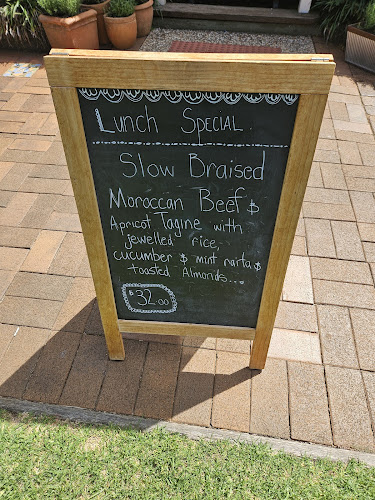 Lunch Special.
Slow Braised
Moroccan Beef &
Apricot Tagine with
jewelled rice,
cucumber & mint riaita &
toasted Almonds....
$32.00